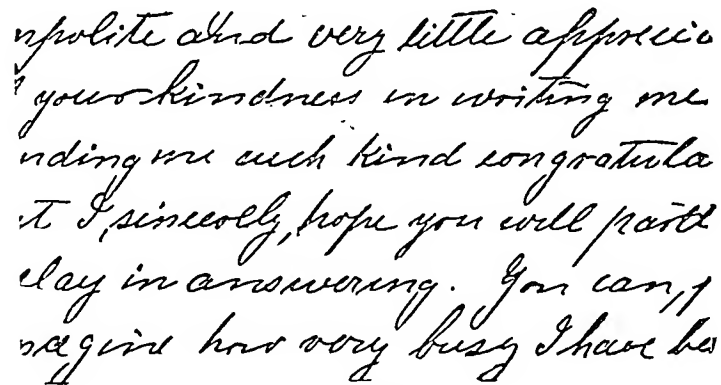 npolite and very little apprecia
your kindness in writing me
nding me such kind congratula
t I, sincerely, hope you will pard
elay in answering. You can, p
magine how very busy I have be